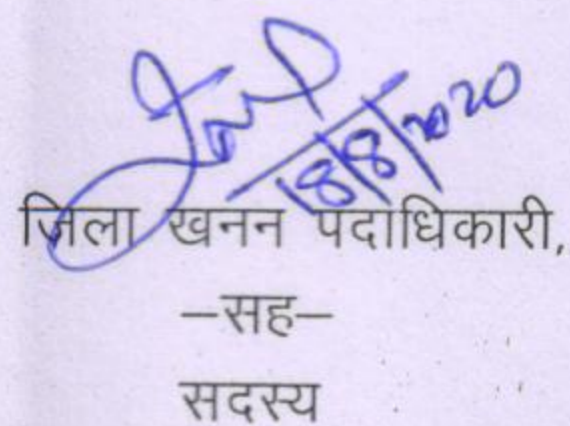 18/8/2020
जिला खनन पदाधिकारी,
–सह–
सदस्य